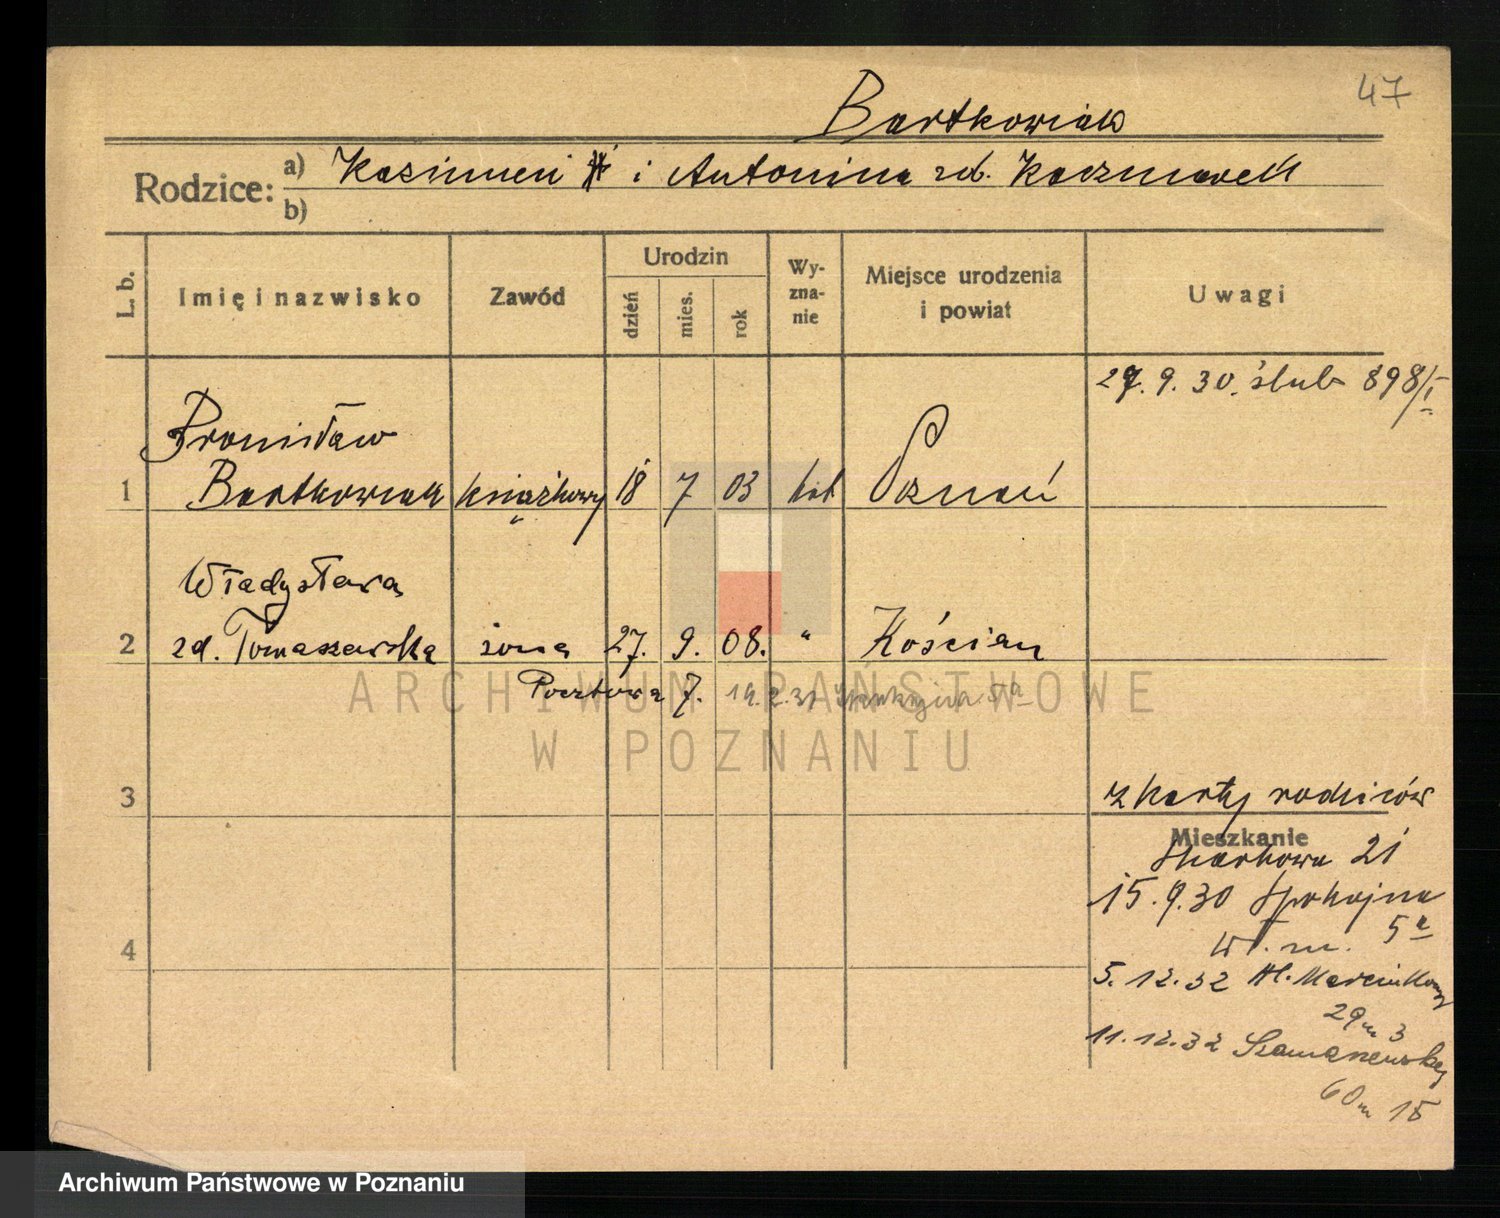 47
Bartkowiak
Rodzice: a) Kazimierz i Antonina zd. Kaczmarek
b)
L. b. Imię i nazwisko Zawód Urodzin dzień mies. rok Wyznanie Miejsce urodzenia i powiat Uwagi
27. 9. 30. ślub 898/I
Bronisław
1 Bartkowiak 18 7 03 kat Poznań
Władysława
2 zd. Tomaszewska żona 27. 9. 08. " Kościan
Pocztowa 7. 14.2.31 5a
3 z karty rodziców
Mieszkanie
21
15.9.30 Spokojna
5a
4
5.12.32 Al. Marcinkow
29 m 3
11.12.32
60 m 15
ARCHIWUM PAŃSTWOWE
W POZNANIU
Archiwum Państwowe w Poznaniu